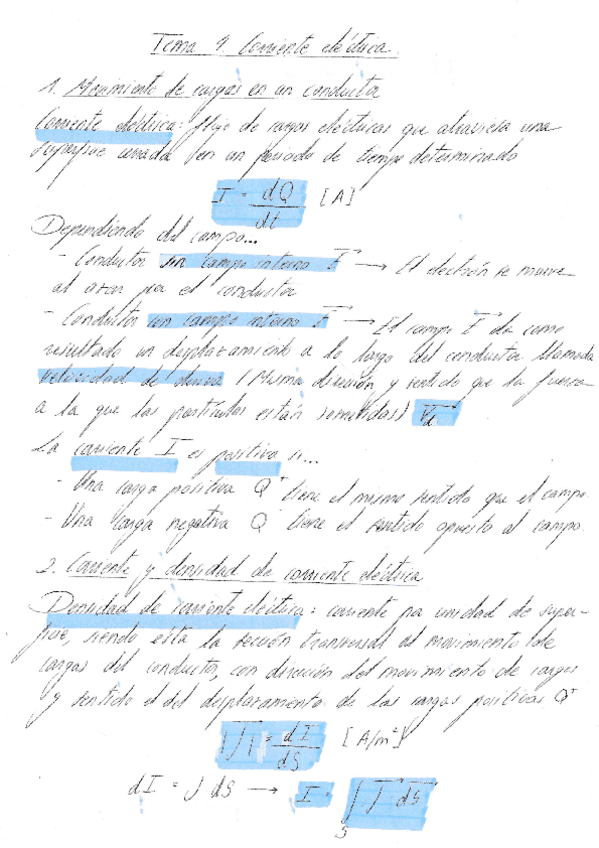 Tema 9. Corriente eléctrica.
1. Movimiento de cargas en un conductor
Corriente eléctrica: flujo de cargas eléctricas que atraviesa una
superficie cerrada en un periodo de tiempo determinado
I = dQ/dt [A]
Dependiendo del campo...
- Conductor sin campo interno E → El electrón se mueve
al azar por el conductor
- Conductor con campo interno E → El campo E da como
resultado un desplazamiento a lo largo del conductor llamada
velocidad de deriva (Misma dirección y sentido que la fuerza
a la que las partículas están sometidas) Vd
La corriente I es positiva si...
- Una carga positiva Q+ tiene el mismo sentido que el campo.
- Una carga negativa Q- tiene el sentido opuesto al campo.
2. Corriente y densidad de corriente eléctrica
Densidad de corriente eléctrica: corriente por unidad de super-
ficie, siendo esta la sección transversal al movimiento de
cargas del conductor, con dirección del movimiento de cargas
y sentido el del desplazamento de las cargas positivas Q+
|J| = dI/dS [A/m²]
dI = J dS → I = ∫s J dS